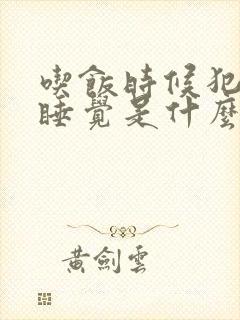 喫飯時候犯
睡覺是什麼
黃劍雲